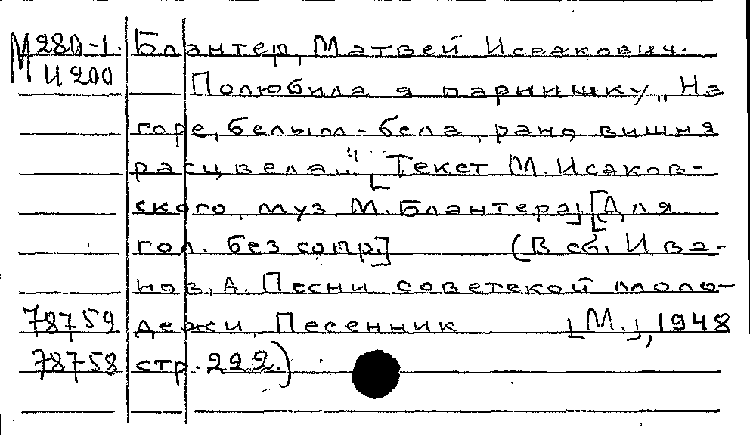 М 280-1. Блантер, Матвей Исаакович.
И 200 Полюбила я парнишку „На
горе, белым-бела, рано вишня
расцвела..." [Текст М. Исаков-
ского, муз М. Блантера] [Для
гол. без сопр.] (В сб. Ива-
нов, А. Песни советской моло-
78759 дежи, Песенник [М.], 1948
78758 стр. 222.)